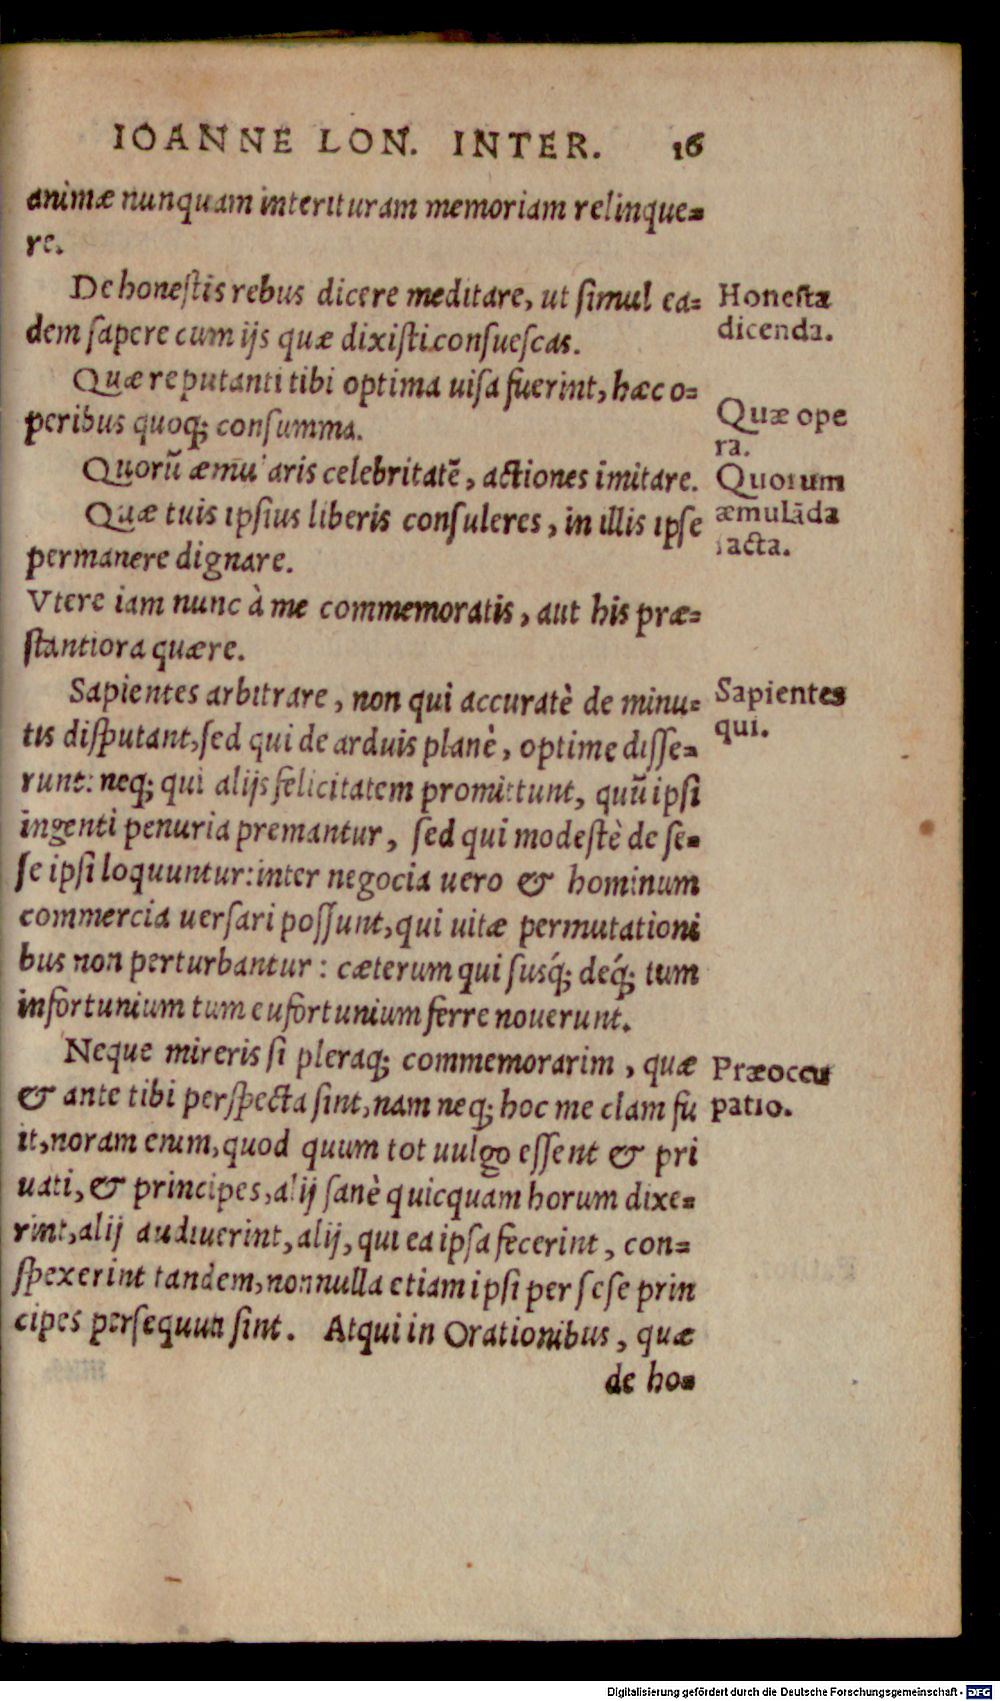 IOANNE LON. INTER. 16
animæ nunquam interituram memoriam relinque=
re.
De honeſtis rebus dicere meditare, ut ſimul ea=
dem ſapere cum ijs quæ dixiſti conſueſcas.
Honeſta
dicenda.
Quæ reputanti tibi optima uiſa fuerint, hæc o=
peribus quoq; conſumma.
Quæ ope
ra.
Quorũ æmu aris celebritatẽ, actiones imitare.
Quæ tuis ipſius liberis conſuleres, in illis ipſe
permanere dignare.
Quorum
æmulãda
facta.
Vtere iam nunc à me commemoratis, aut his præ=
ſtantiora quære.
Sapientes arbitrare, non qui accuratè de minu=
tis diſputant, ſed qui de arduis planè, optime diſſe=
runt: neq; qui alijs felicitatem promittunt, quũ ipſi
ingenti penuria premantur, ſed qui modeſtè de ſe=
ſe ipſi loquuntur: inter negocia uero & hominum
commercia uerſari poſſunt, qui uitæ permutationi
bus non perturbantur: cæterum qui ſusq́; deq́; tum
infortunium tum eufortunium ferre nouerunt.
Sapientes
qui.
Neque mireris ſi pleraq; commemorarim, quæ
& ante tibi perſpecta ſint, nam neq; hoc me clam fu
it, noram enim, quod quum tot uulgo eſſent & pri
uati, & principes, alij ſanè quicquam horum dixe=
rint, alij audiuerint, alij, qui ea ipſa fecerint, con=
ſpexerint tandem, nonnulla etiam ipſi per ſeſe prin
cipes perſequuti ſint. Atqui in Orationibus, quæ
Præoccu
patio.
de ho=
Digitalisierung gefördert durch die Deutsche Forschungsgemeinschaft - DFG